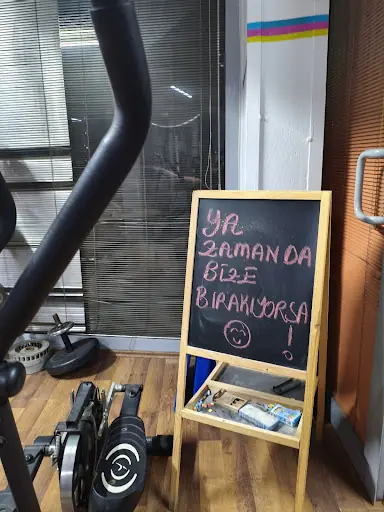 YA
ZAMAN DA
BİZE
BIRAKIYORSA
!